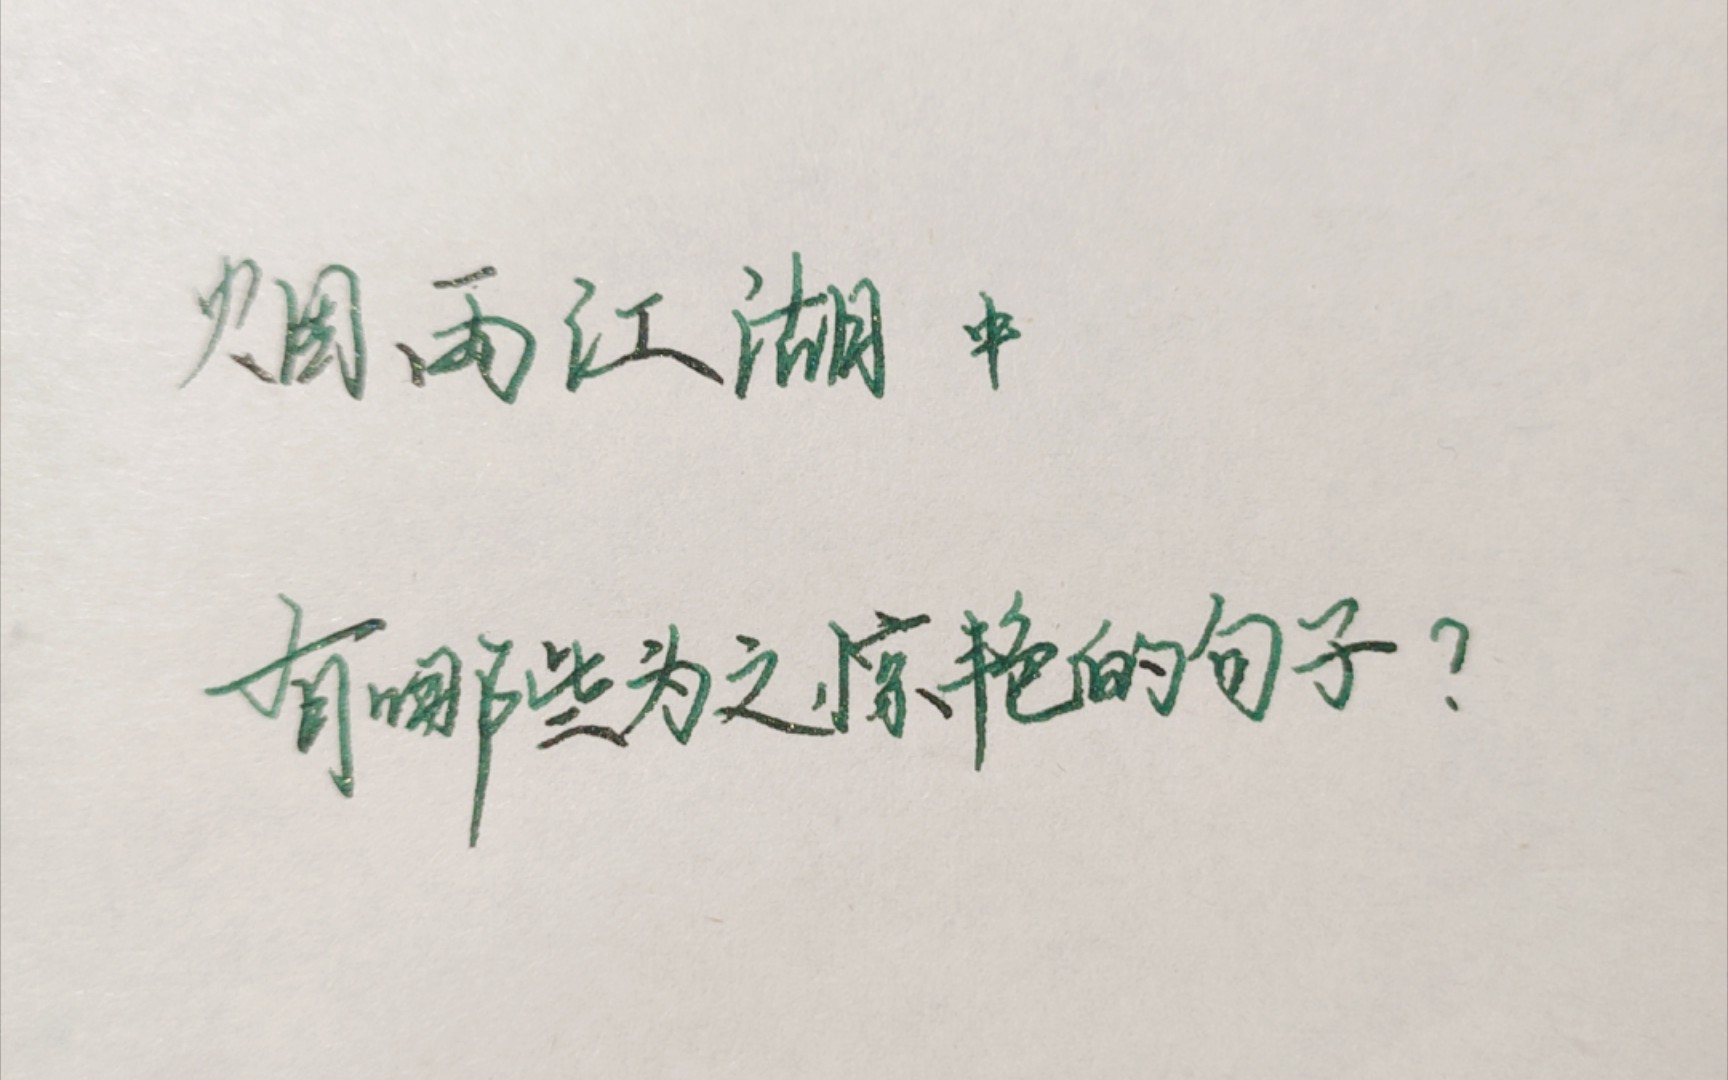 烟雨江湖中
有哪些为之惊艳的句子?